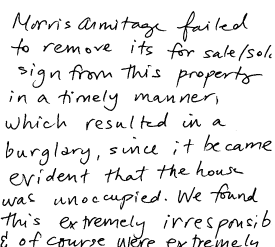 Morris Armitage failed
to remove its for sale/sold
sign from this property
in a timely manner,
which resulted in a
burglary, since it became
evident that the house
was unoccupied. We found
this extremely irresponsib
& of course were extremely